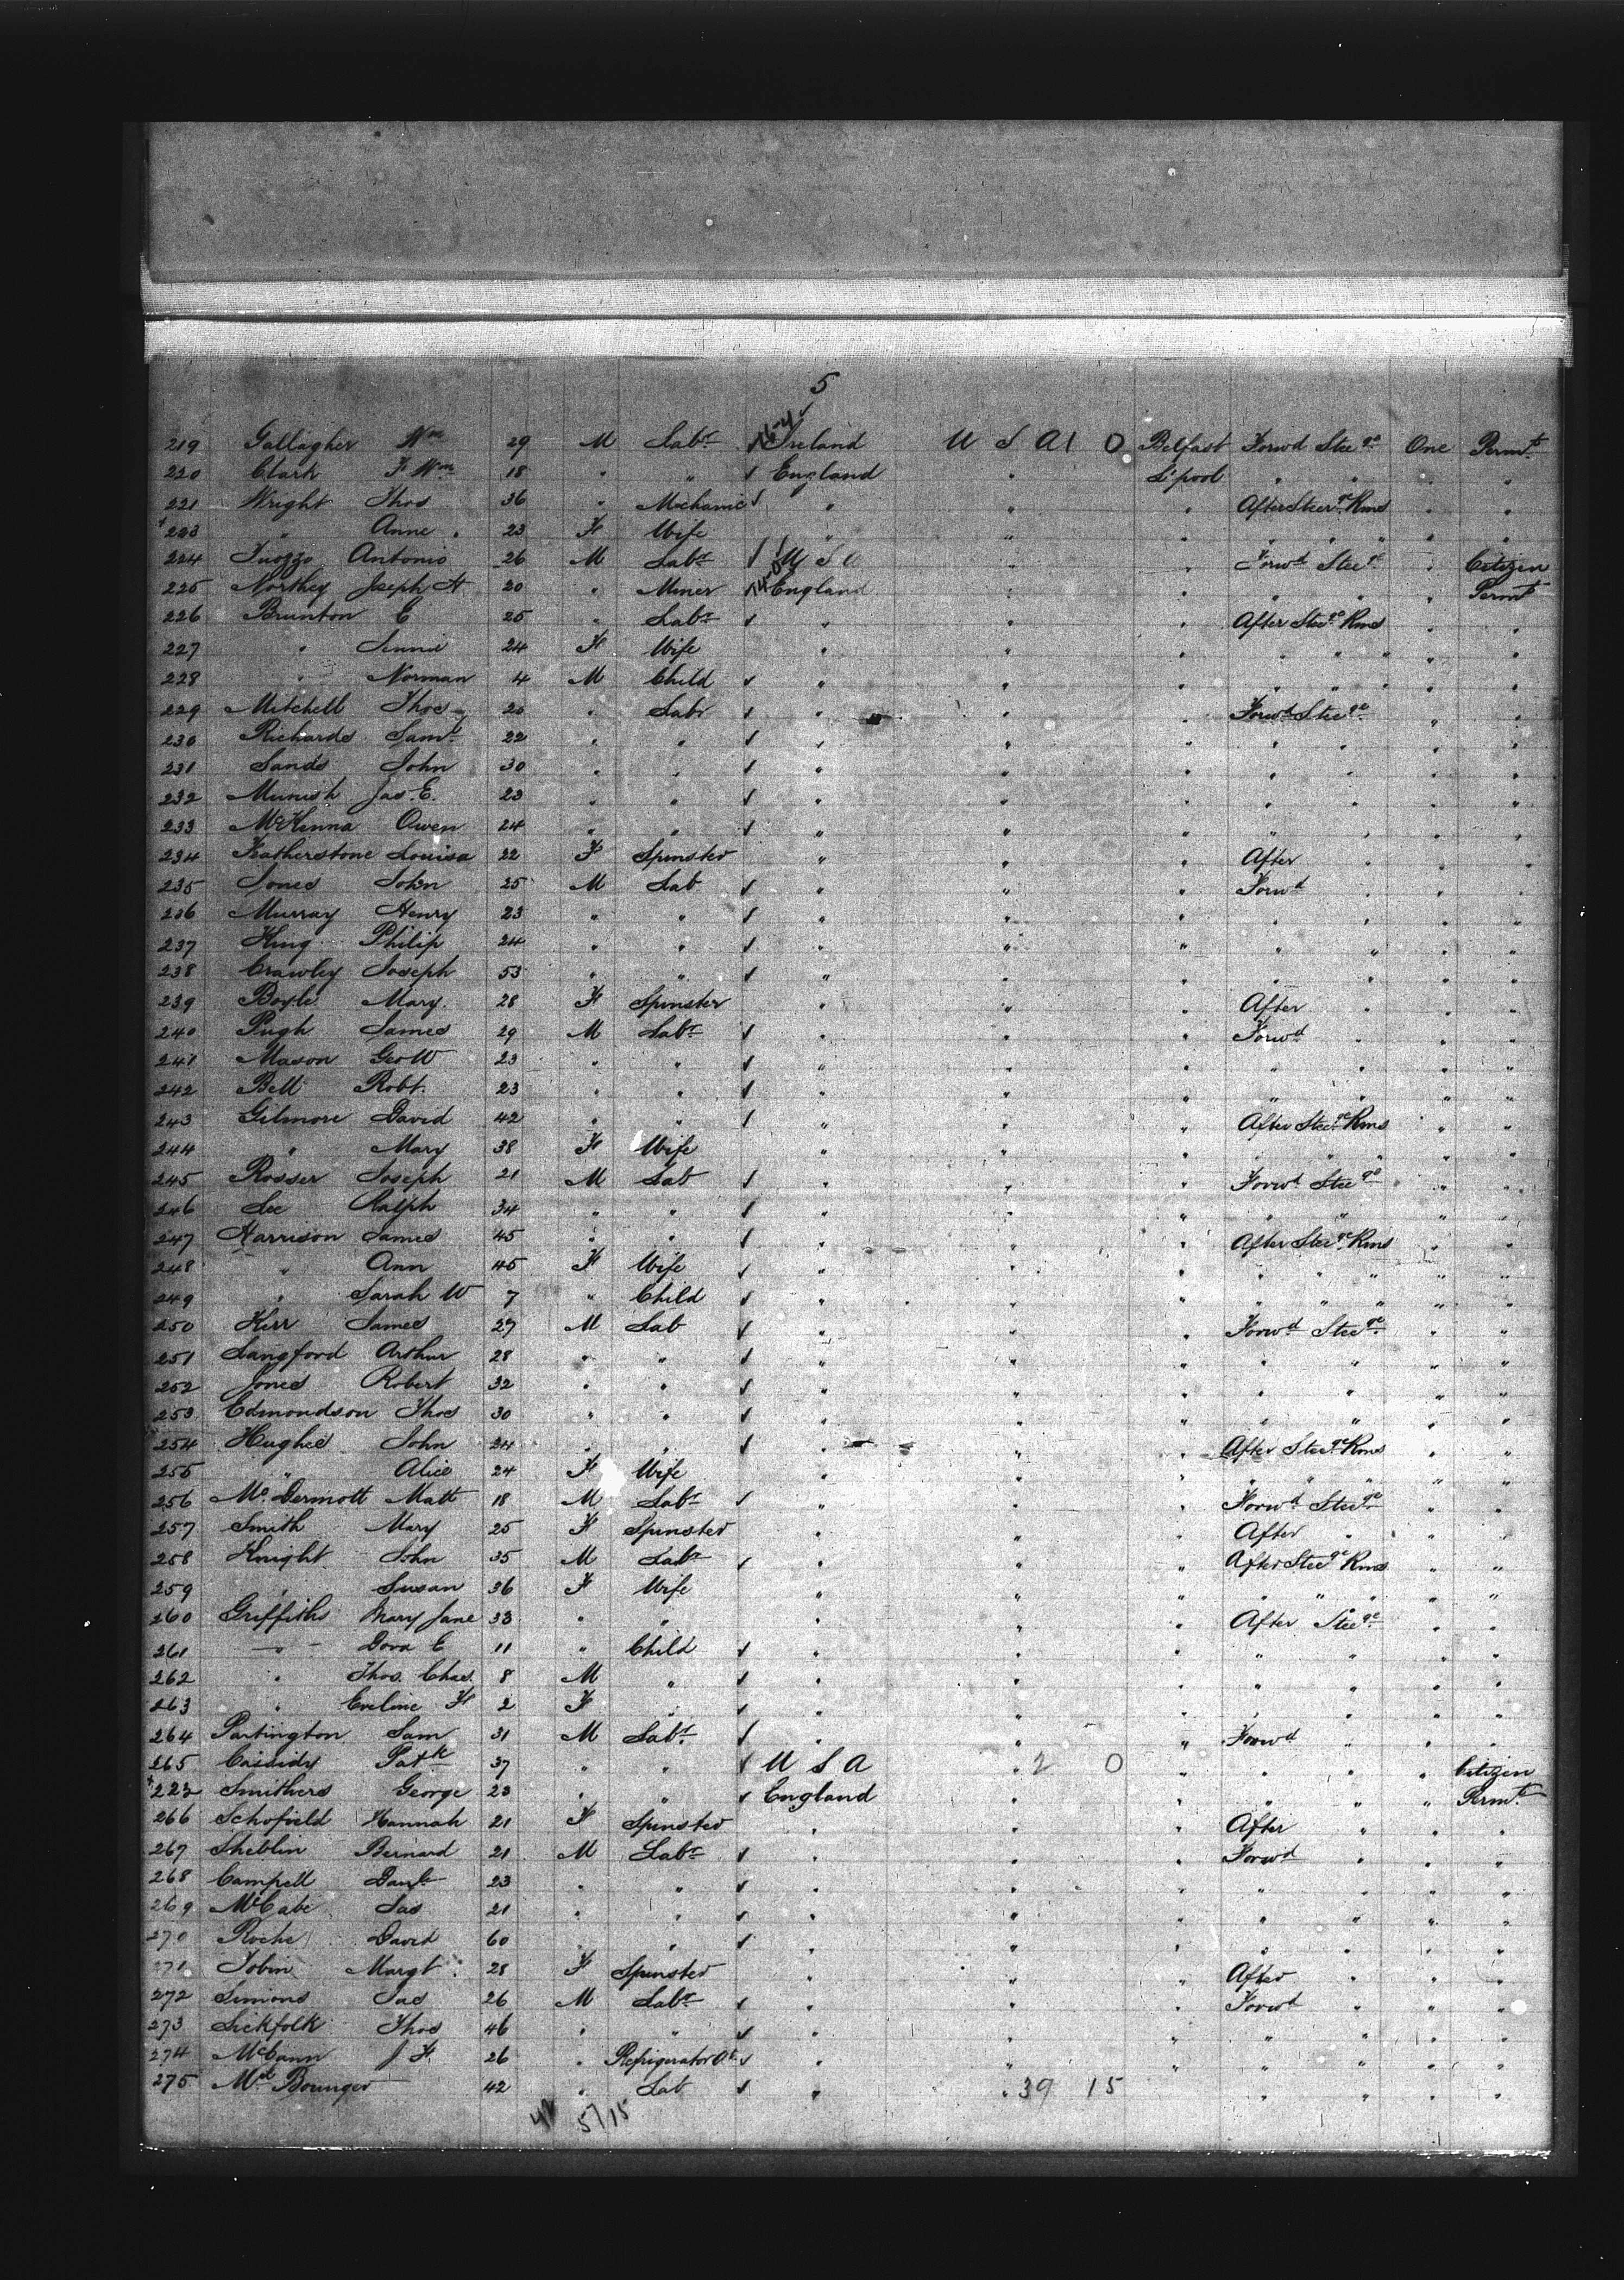 5
219 Gallagher Wm 29 M Labr Ireland U S A 1 0 Belfast Forwd Steege One Permt
220 Clark F Wm 18 " " England " L'pool " " " "
221 Wright Thos 36 " Mechanic " " " After Steerge Rms " "
223 " Anne 23 F Wife " " " " " " " "
224 Antonio 26 M Labr U S A " " Forwd Steege " Citizen
225 Northey Joseph H 20 " Miner England " " " " " Permt
226 Brunton E 25 " Labr " " " After Steege Rms " "
227 " Jennie 24 F Wife " " " " " " " "
228 " Norman 4 M Child " " " " " " " "
229 Mitchell Thos 20 " Labr " " " Forwd Steege " "
230 Richards Saml 22 " " " " " " " " "
231 Sands John 30 " " " " " " " " "
232 Munish Jas. E. 23 " " " " " " " " "
233 McKenna Owen 24 " " " " " " " " "
234 Featherstone Louisa 22 F Spinster " " " After " " "
235 Jones John 25 M Lab " " " Forwd " " "
236 Murray Henry 23 " " " " " " " " "
237 King Philip 24 " " " " " " " " "
238 Crawley Joseph 53 " " " " " " " " "
239 Boyle Mary 28 F Spinster " " " After " " "
240 Pugh James 29 M Labr " " " Forwd " " "
241 Mason Geo W 23 " " " " " " " " "
242 Bell Robt. 23 " " " " " " " " "
243 Gilmore David 42 " " " " " After Steege Rms " "
244 " Mary 38 F Wife " " " " " " " "
245 Rosser Joseph 21 M Lab " " " Forwd Steege " "
246 Lee Ralph 34 " " " " " " " " "
247 Harrison James 45 " " " " " After Steege Rms " "
248 " Ann 45 F Wife " " " " " " " "
249 " Sarah W 7 " Child " " " " " " " "
250 Kerr James 27 M Lab " " " Forwd Steege " "
251 Langford Arthur 28 " " " " " " " " "
252 Jones Robert 32 " " " " " " " " "
253 Edmondson Thos 30 " " " " " " " " "
254 Hughes John 24 " " " " " After Steege Rms " "
255 " Alice 24 F Wife " " " " " " " "
256 McDermott Matt 18 M Labr " " " Forwd Steege " "
257 Smith Mary 25 F Spinster " " " After " " "
258 Knight John 35 M Labr " " " After Steege Rms " "
259 " Susan 36 F Wife " " " " " " " "
260 Griffiths Mary Jane 33 " " " " " After Steege " "
261 " Dora E 11 " Child " " " " " " "
262 " Thos. Chas. 8 M " " " " " " " "
263 " Eveline F 2 F " " " " " " " "
264 Partington Sam 31 M Labr " " " Forwd " " "
265 Cassidy Patk 37 " " U S A " 2 0 " " " " Citizen
223 Smithers George 23 " " England " " " " " Permt
266 Schofield Hannah 21 F Spinster " " " After " " "
267 Sheblin Bernard 21 M Labr " " " Forwd " " "
268 Campell Danl 23 " " " " " " " " "
269 McCabe Jas 21 " " " " " " " " "
270 Roche David 60 " " " " " " " " "
271 Tobin Margt 28 F Spinster " " " After " " "
272 Simons Jas 26 M Labr " " " Forwd " " "
273 Sickfolk Thos 46 " " " " " " " " "
274 McCann J F. 26 " Refrigerator " " " " " " "
275 Bounger 42 " Lab " " 39 15 " " " "
5/15